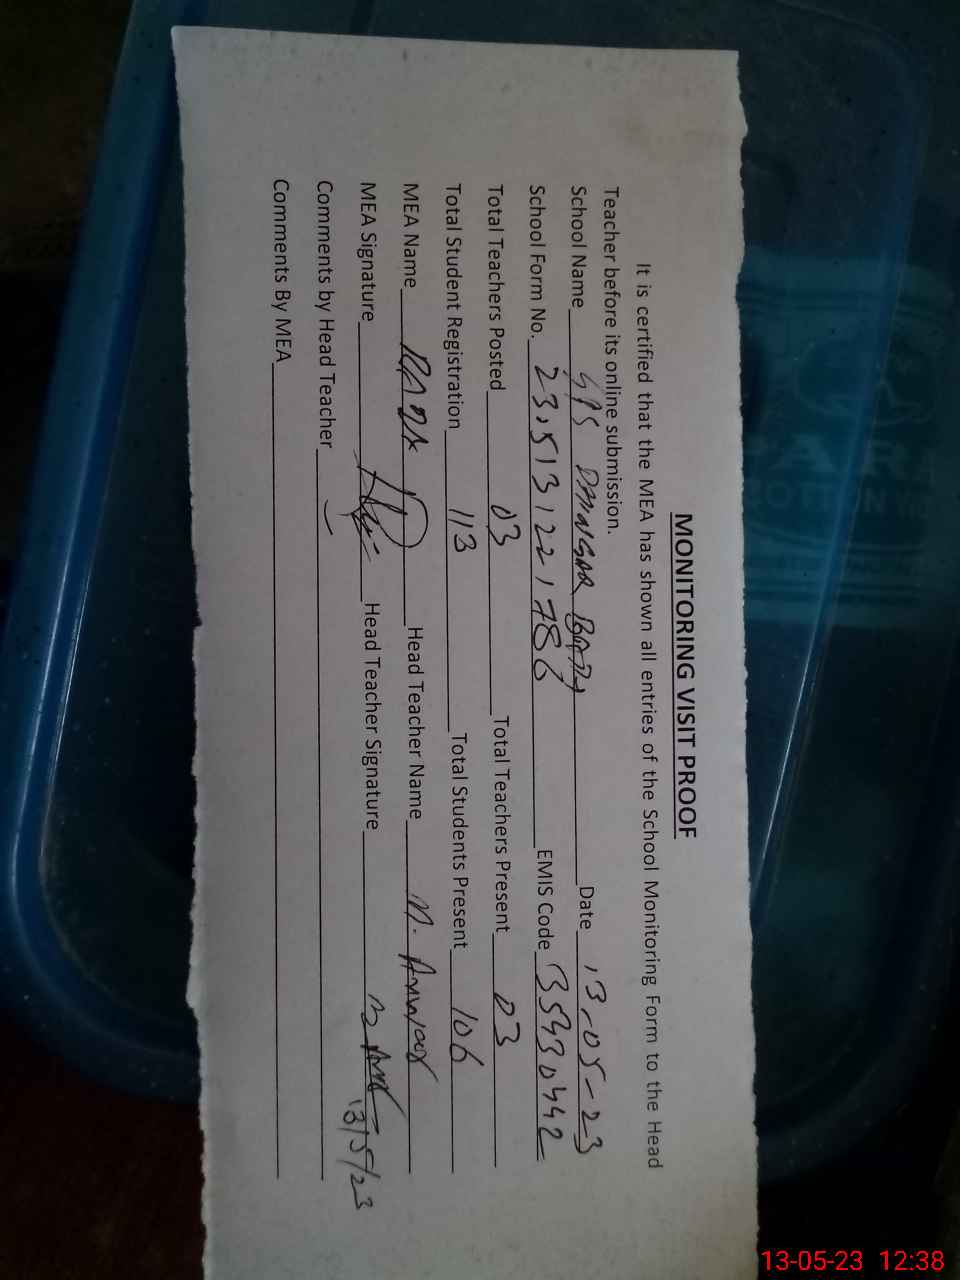 MONITORING VISIT PROOF
It is certified that the MEA has shown all entries of the School Monitoring Form to the Head
Teacher before its online submission.
School Name GPS Date 13-05-23
School Form No. EMIS Code 35430442
Total Teachers Posted 03 Total Teachers Present 03
Total Student Registration 113 Total Students Present 106
MEA Name Head Teacher Name M. Anwar
MEA Signature Head Teacher Signature 13/5/23
Comments by Head Teacher
Comments By MEA
13-05-23 12:38